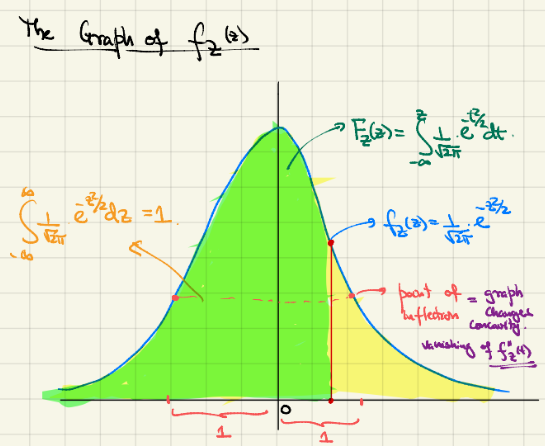 The Graph of f_Z(z)
F_Z(z) = ∫_{-∞}^{z} 1/√2π e^{-t²/2} dt.
∫_{-∞}^{∞} 1/√2π e^{-z²/2} dz = 1.
f_Z(z) = 1/√2π e^{-z²/2}
point of inflection = graph changes concavity.
vanishing of f_Z''(z)
0
1
1